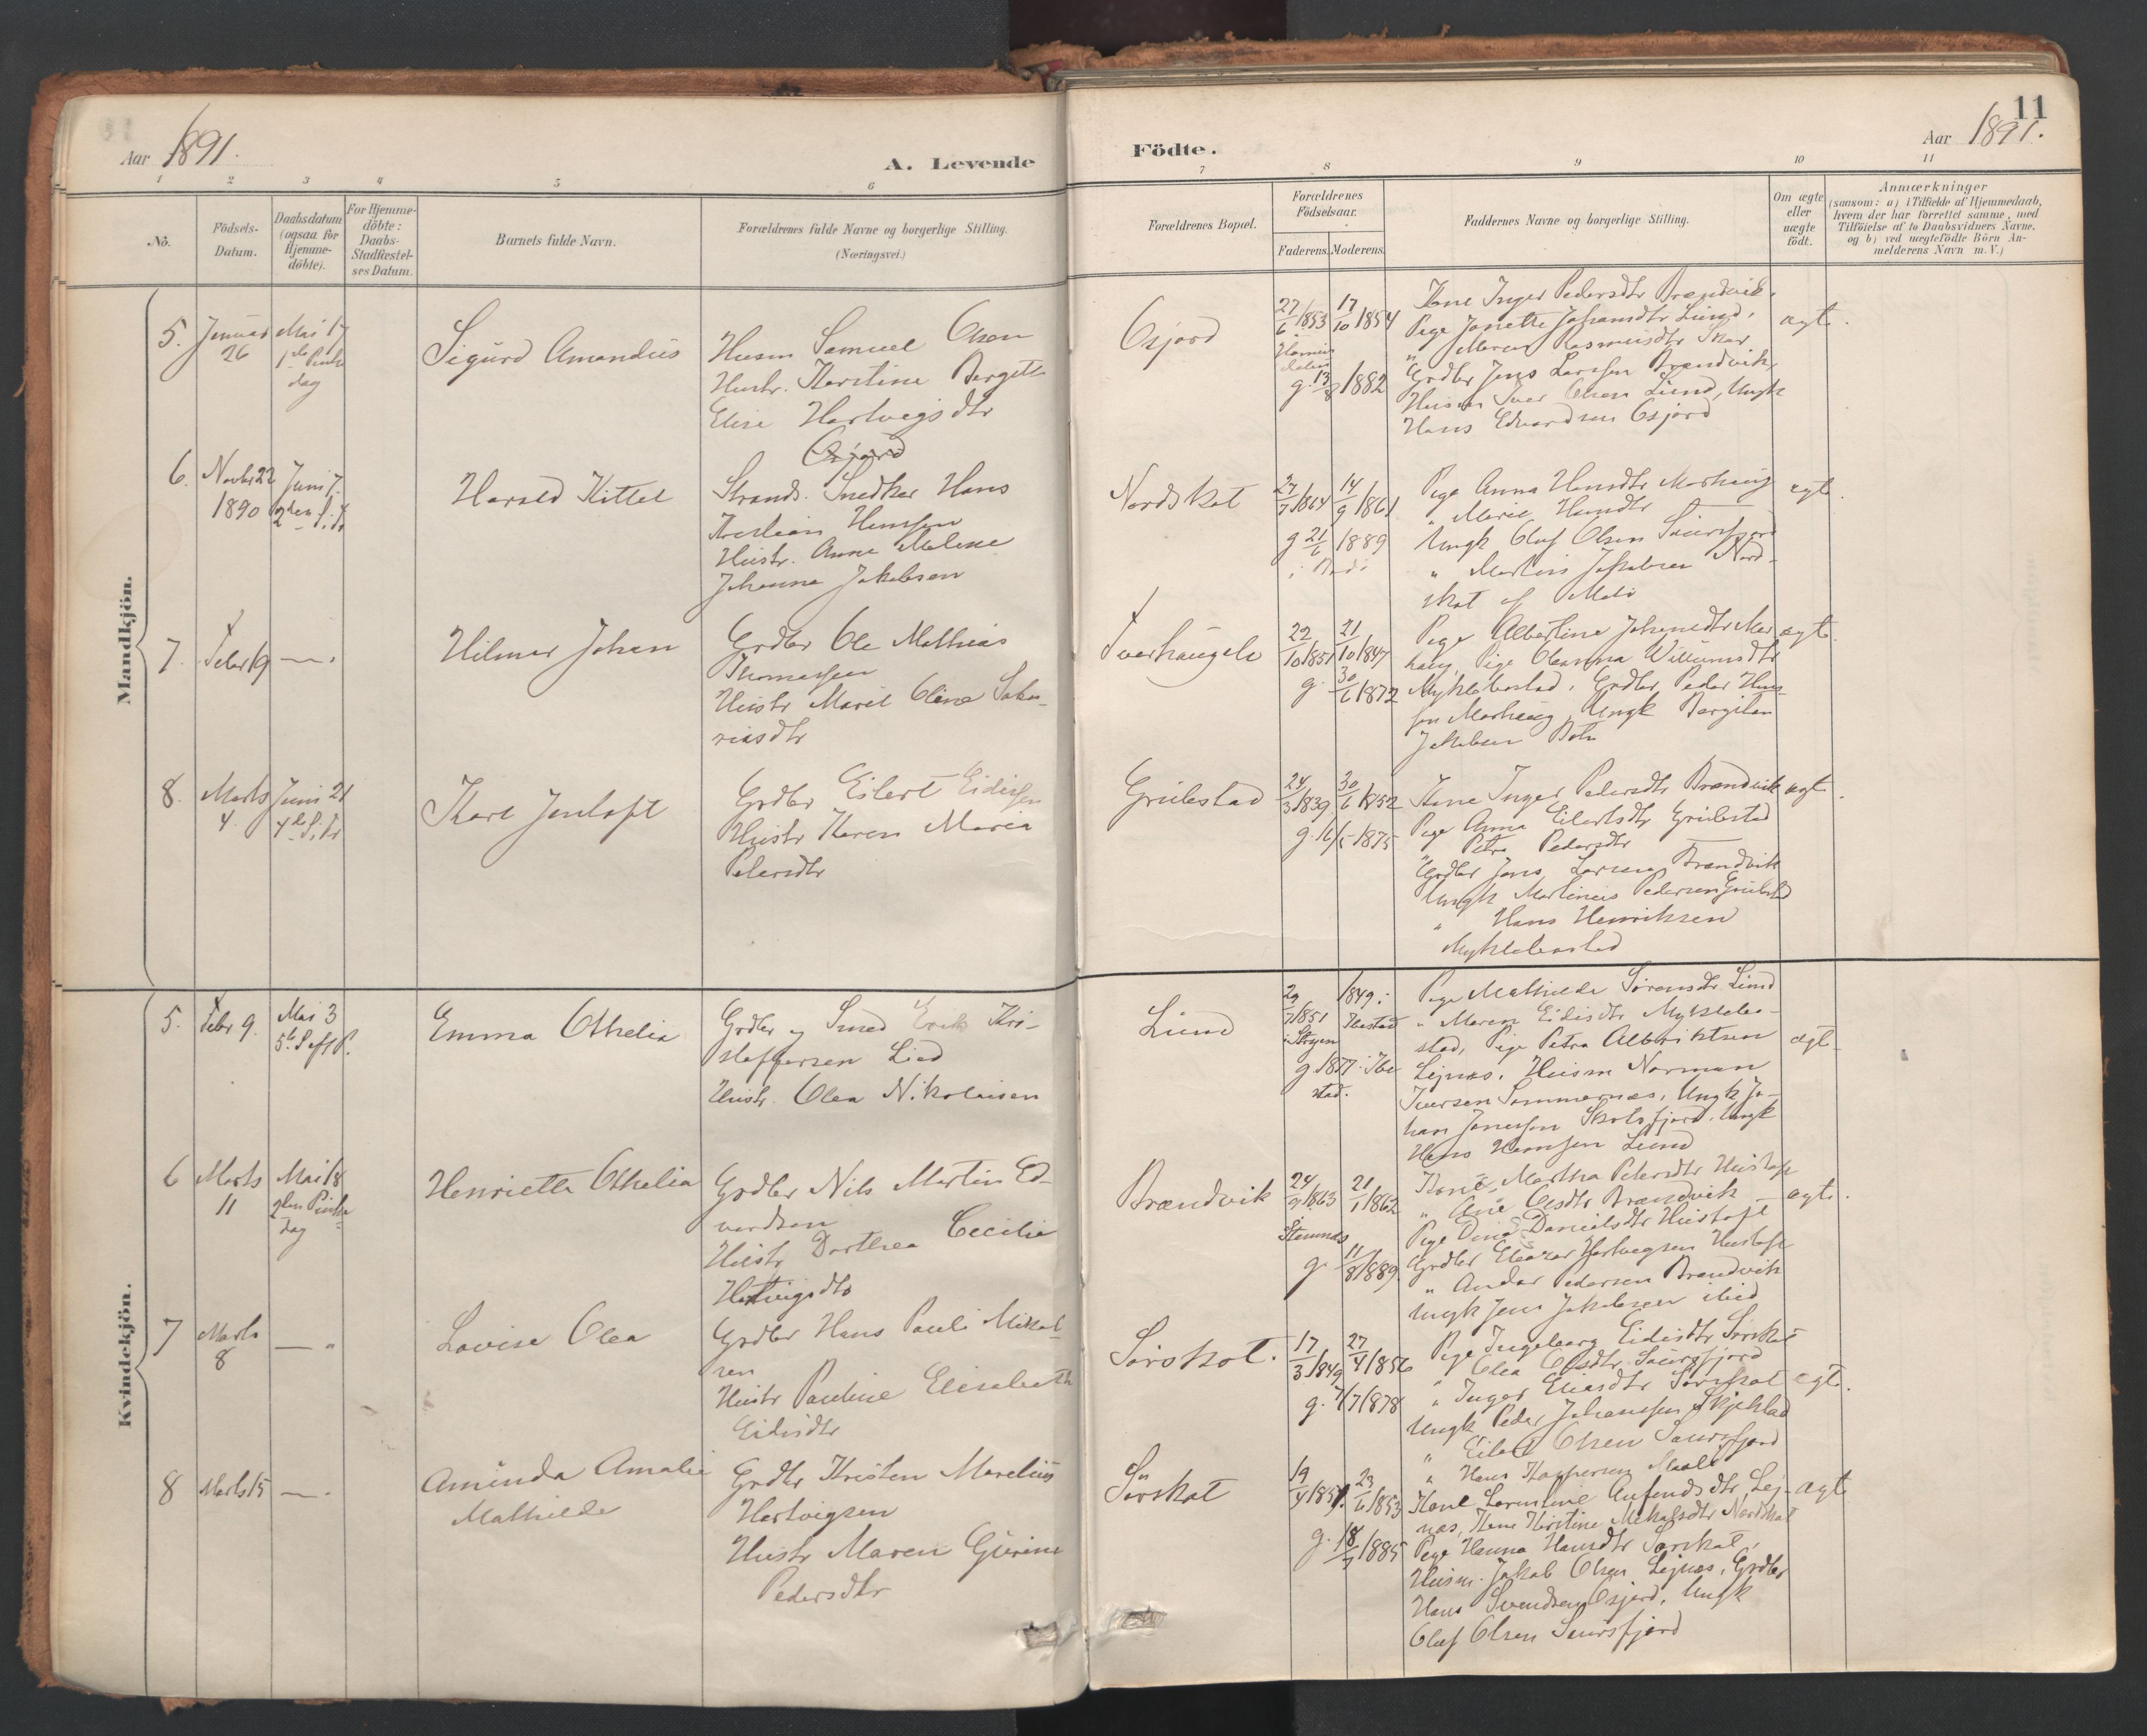 11
Aar 1891.
A. Levende
Födte.
Aar 1891.
1 2 3 4 5 6 7 8 9 10 11
Nò.
Födsels-
Datum.
Daabsdatum
(ogsaa for
Hjemme-
döbte).
For Hjemme-
döbte:
Daabs-
Stadfæstel-
ses Datum.
Barnets fulde Navn.
Forældrenes fulde Navne og borgerlige Stilling.
(Næringsvei.)
Forældrenes Bopæl.
Forældrenes
Födselsaar.
Faderens. Moderens.
Faddernes Navne og borgerlige Stilling.
Om ægte
eller
uægte
födt.
Anmærkninger
(saasom: a) i Tilfælde af Hjemmedaab,
hvem der har forrettet samme, med
Tilföielse af to Daabsvidners Navne.
og b) ved uægtefödte Börn An-
melderens Navn m.V.)
Mandkjön.
5.
Januar
26
Mai 17
1ste Pintse
dag
Sigurd Amandus
Husm Samuel Olsen
Hustr. Kerstine Bergitte
Elise Hartvigsdtr
Osjord
27/6 1853
17/10 1854
g. 13/8 1882
Kone Inger Pedersdtr Brændvik.
Pige Janette Johansdtr Lund,
" Maren Rasmusdtr Skar
Grdbr Jens Larssen Brændvik,
Husm Iver Olsen Lund, Ungk
Hans Edvardsen Osjord
ægte.
6.
Novbr 22
1890
Juni 7.
2den S. Tr
Harald Kittel
Osjord
Strands. Snedker Hans
Kristian Hanssen
Hustr. Anne Malene
Johanna Jakobsen
Nordskot
27/7 1864
14/9 1861
g 21/6 1889
i Bodö
Pige Anna Hansdtr Marhaug
" Marie Hansdtr
Ungk Oluf Olsen Saursfjord
" Martin Jakobsen Nord-
skot
ægte.
7.
Febr 19
— " .
Hilmar Johan
Grdbr Ole Mathias
Thomassen
Hustr Marit Oline Saka-
riasdtr
Tverhaugele
22/10 1851
21/10 1847
g. 30/6 1872
Pige Albertine Johansdtr Mar
haug, Pige Oleanna Willumsdtr
Myklebostad, Grdbr Peder Hans-
sen Marhaug, Ungk Bergiton
Jakobsen
ægte.
8.
Marts
4.
Juni 21
4de S. Tr
Karl Jentoft
Grdbr Eilert Eidissen
Hustr Karen Maria
Pedersdtr
Grubstad
24/3 1839
30/6 1852
g. 16/5 1875
Kone Inger Pedersdtr Brændvik
Pige Anna Eilertsdtr Grubstad
" Petra Pedersdtr
Grdbr Jens Larsen Brændvik
Ungk Martinus Pedersen Grubstad
" Hans Henriksen
Myklebostad
ægte.
Kvindekjön.
5.
Febr 9.
Mai 3
5te S. eft P.
Emma Othelia
Grdbr og Smed Erik Kri-
stoffersen Lied
Hustr. Olea Nikolaisen
Lund
29/7 1851
1849 i
Ibestad
g. 1877 i Ibe
stad.
Pige Mathilde Sörensdtr Lund
" Maren Eidisdtr Myklebo-
stad, Pige Petra Albriktsen
Lejnæs. Husm Norman
Iversen Sommernæs, Ungk Jo-
han Jonassen Skotsfjord. Ungk
Hans Hanssen Lund
ægte
6
Marts
11
Mai 18
2den Pintse
dag
Henriette Othelia
Grdbr Nils Martin Ed-
vardsen
Hustr Dorthea Cecilie
Hartvigsdtr
Brændvik
24/9 1863
21/1 1862
Stamnæs
g. 11/8 1889
Kone Martha Pedersdtr Hustoft
" Ane Olsdtr Brændvik
Pige Dina Danielsdtr Hustoft
Grdbr Eleazar Hartvigsen Hustoft
" Andor Pedersen Brændvik
Ungk Jens Jakobsen ibid
ægte.
7
Marts
8
— "
Lovise Olea
Grdbr Hans Pauli Mikal-
sen
Hustr Pauline Elisabeth
Eidisdtr
Sörskot.
17/3 1849
27/4 1856
g. 7/7 1878
Pige Ingeborg Eidisdtr Sörskot
" Olea Olsdtr Saursfjord
" Inger Eliasdtr Sörskot
Ungk Peder Johansen Skjelstad
" Eilert Olsen Saursfjord
" Hans Kaspersen
ægte.
8
Marts 15
— " .
Aminda Amalie
Mathilde
Grdbr Kristen Marelius
Hartvigsen
Hustr Maren Gurine
Pedersdtr
Sörskot
19/4 1851.
23/6 1853
g. 18/7 1885
Kone Lorentine Anfindsdtr Lej-
næs, Kone Kirstine Mikalsdtr Nordskot
Pige Hanna Hansdtr Sörskot,
Husm. Jakob Olsen Lejnæs, Grdbr
Hans Svendsen Osjord, Ungk
Oluf Olsen Saursfjord
ægte